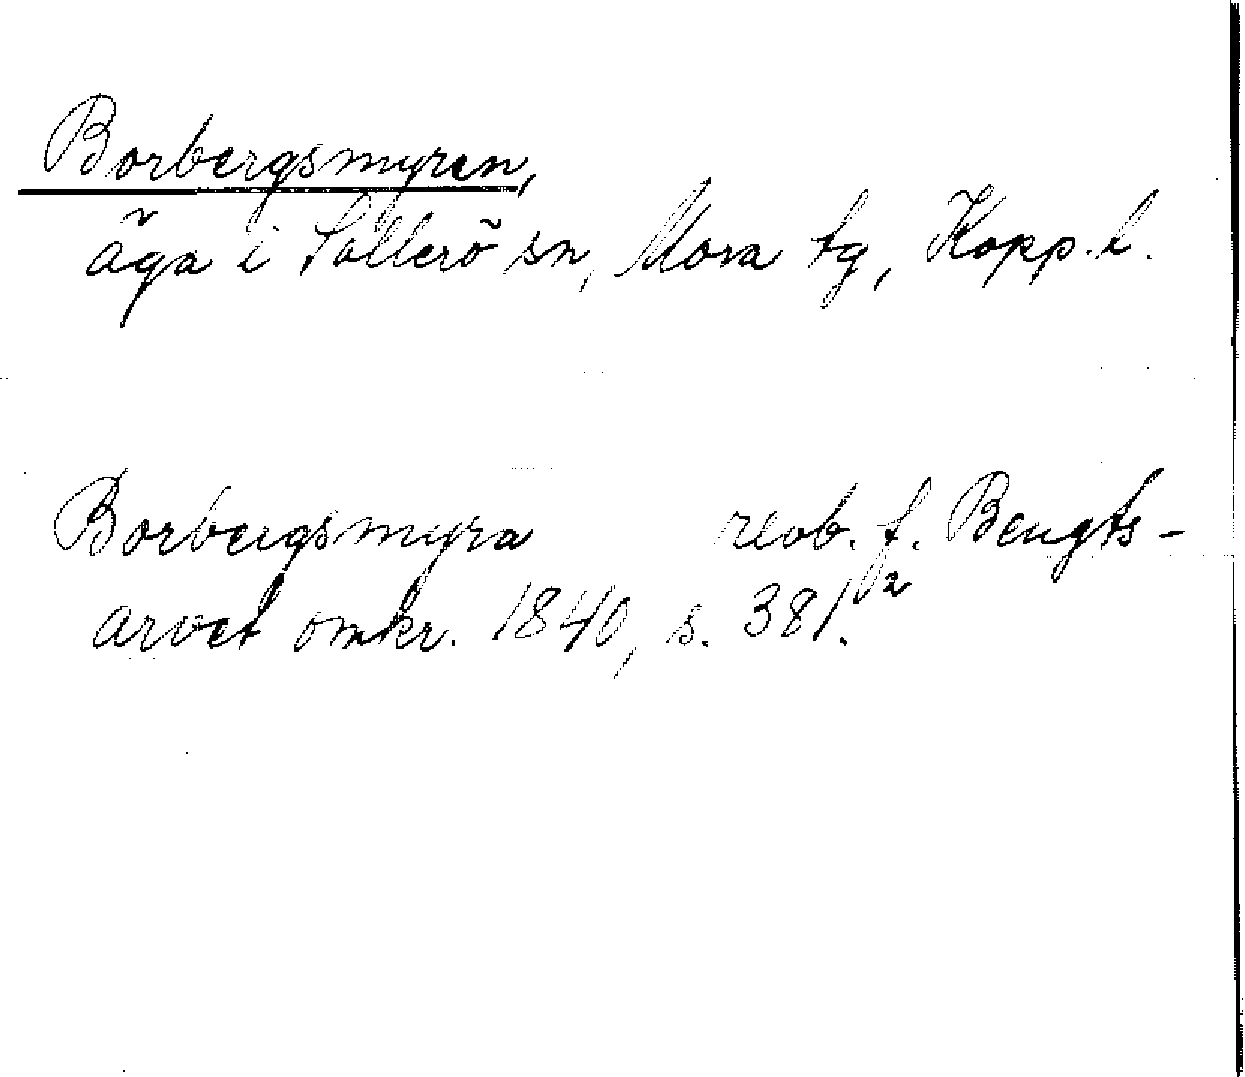 Borbergsmyren,
äga i Sollerö sn, Mora tg, Kopp. l.
Borbergsmyra revb. f. Bengts-
arvet omkr. 1840, s. 381.²